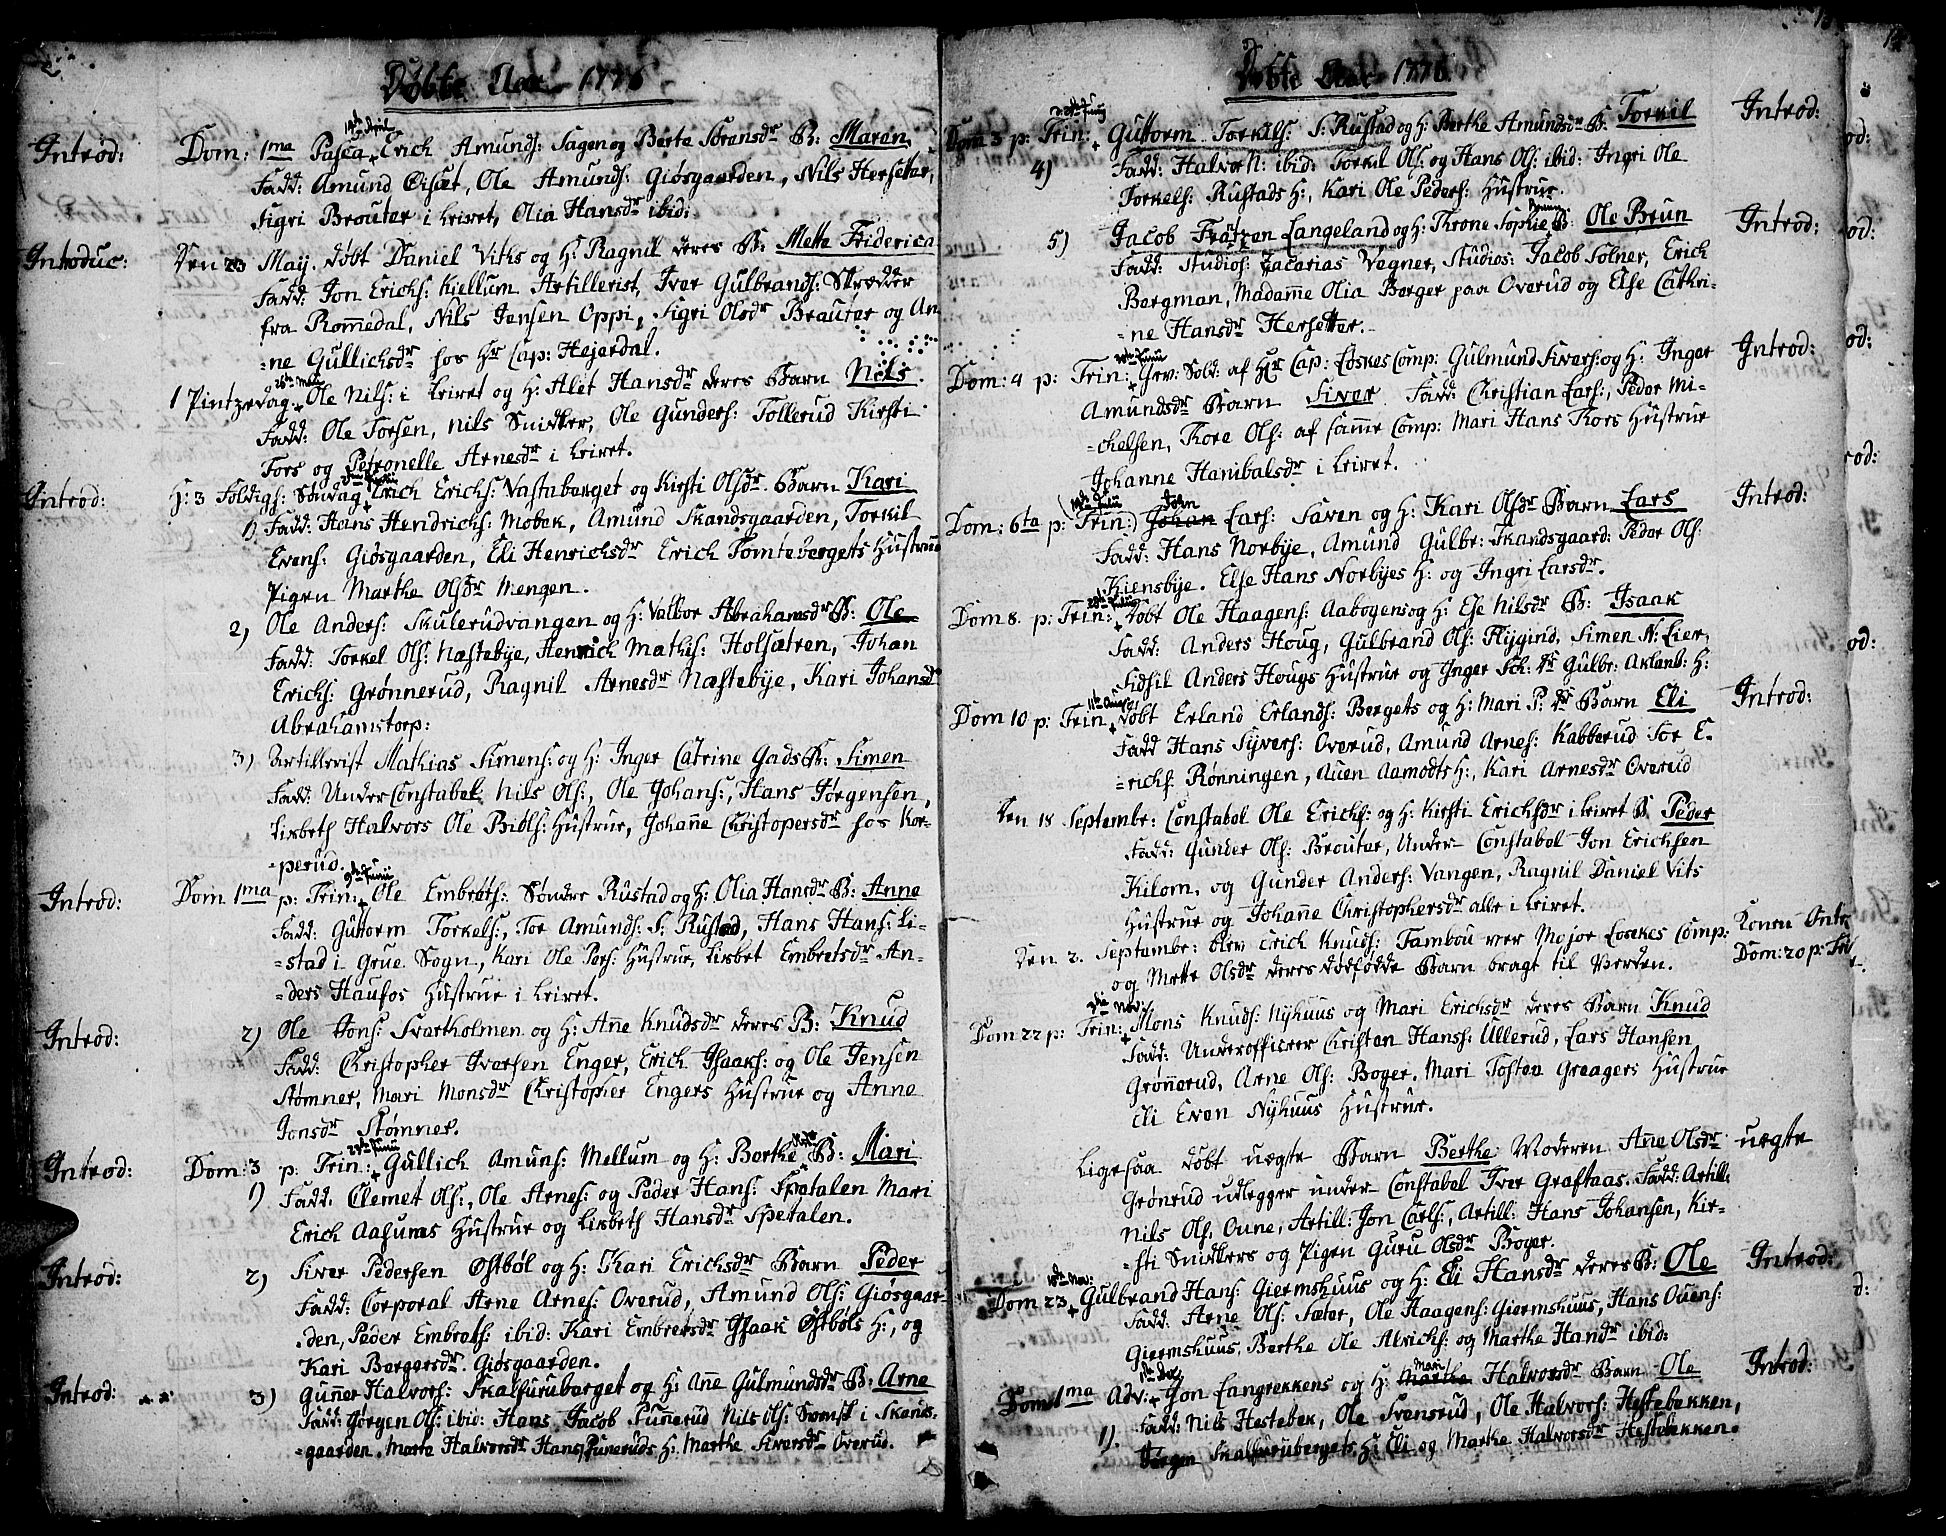 Døbte Aar 1776
14de April
Introd: Dom: 1ma Pasca + Erich Amunds: Sagen og Berte Sørensdr B: Maren
Fadd: Amund Øiset, Ole Amunds: Giøsgaarden, Nils Hersetter,
Sigri Brouter i Leiret, Olia Hansdr ibid:
Introduc: Den 23 May. døbt Daniel Viths og H: Ragnil deres B: Mette Friderica
Fadd: Jon Erichs: Kiellum Artillerist, Iver Gulbrands: Skredder
fra Rommedal, Nils Jensen Oppi, Sigri Olsdr Brauter og An
=ne Gullichsdr hos Hr Cap: Hejerdal.
26de Maii
1 Pintzedag. + Ole Nils: i Leiret og H: Alet Hansdr deres Barn Nils.
Fadd: Ole Torsen, Nils Snidker, Ole Gunders: Tollerud Kirsti
Tors og Petronelle Arnesdr i Leiret.
Introd: H: 3 Foldigh: Søndag + Erich Erichs: Vastaberget og Kirsti Olsdr Barn Kari
1) Fadd: Hans Hendrichs: Mobek, Amund Skandsgaarden, Torkil
Evens: Giøsgaarden, Eli Henrichsdr Erich Tomtebergets Hustrue
Pigen Marthe Olsdr Mengen.
2) Ole Anders: Skulerudvangen og H: Valbor Abrahamsdr B: Ole
Fadd: Torkel Ols: Næstebye, Henrich Mathis: Holsætren, Johan
Erichs: Grønnerud, Ragnil Arnesdr Næstebye, Kari Johansdr
Abrahamstorp:
3) Artillerist Mathias Simens: og H: Inger Catrine Gads B: Simen
Fadd: Under Constabel Nils Ols:, Ole Johans:, Hans Jørgensen,
Lisbeth Halvors Ole Bibls: Hustrue, Johanne Christopersdr hos Kor=
=perud.
9de Junii
Introd: Dom 1ma p: Trin: + Ole Embrets: Søndre Rustad og H: Olia Hansdr B: Anne
Fadd: Guttorm Torkels:, Tor Amunds: S: Rustad, Hans Hans: Li=
=stad i Grue Sogn, Kari Ole Pers: Hustrue, Lisbet Embretsdr An=
=ders Haufos Hustrue i Leiret.
Introd: 2) Ole Jons: Svartholmen og H: Anne Knudsdr deres B: Knud
Fadd: Christopher Iversen Enger, Erich Isaaks: og Ole Jensen
Stømner, Mari Monsdr Christopher Engers Hustrue og Anne
Jonsdr Stømner.
23de Junii
Introd: Dom: 3 p: Trin: + Gullich Amuns: Mellum og H: Berthe B: Mari
1) Fadd: Clemet Ols:, Ole Arnes: og Peder Hans: Spetalen Mari
Erich Aasums Hustrue og Lisbeth Hansdr Spetalen.
Introd: 2) Siver Pedersen Østbøl og H: Kari Erichsdr Barn Peder
Fadd: Corporal Arne Arnes: Overud, Amund Ols: Giøsgaar=
=den, Peder Embrets: ibid: Kari Embretsdr Isaak Østbøls H:, og
Kari Bergersdr Giøsgaarden.
Introd: 3) Guner Halvors: Skalfuruberget og H: Ane Gulmundsdr B: Arne
Fadd: Jørgen Ols: ibid: Hans Jacob Punnerud Nils Ols: Svensk i Skands=
=gaarden. Marte Halvorsdr Hans Puneruds H: Marthe Siversdr Overud.
Døbte Aar 1776
d: 23de Junij
Dom 3 p: Trin: + Guttorm Torkels: S: Rustad og H: Berthe Amundsdr B: Torkil Introd:
4) Fadd: Halvor N: ibid: Torkil Ols: og Hans Ols: ibid: Ingri Ole
Torkels: Rustads H:, Kari Ole Peders: Hustrue.
5) Jacob Frøtzen Langeland og H: Throne Sophie Brun B: Ole Brun Introd:
Fadd: Studios: Zacarias Vegner, Studios: Jacob Tolner, Erich
Bergman, Madame Olia Berger paa Overud og Else Cathri=
=ne Hansdr Hersetter.
Dom: 4 p: Trin: + Gev: Sold: af Hr Cap: Loskes Comp: Gulmund Sivers: og H: Inger Introd:
Amundsdr Barn Siver. Fadd: Christian Lars:, Peder Mi=
=chelsen, Tore Ols: af samme Comp: Mari Hans Tors Hustrue
Johanne Hanibalsdr i Leiret.
Dom: 6ta p: Trin: Johan Jørn Lars: Saven og H: Kari Olsdr Barn Lars Introd:
Fadd: Hans Norbye, Amund Gulbr: Skandsgaard: Peder Ols:
Kiensbye. Else Hans Norbyes H: og Ingri Larsdr.
Dom 8. p: Trin: + Døbt Ole Haagens: Aabogen og H: Ese Nilsdr B: Isaak
Fadd: Anders Houg, Gulbrand Ols: Flygind, Simen N: Lier,
Sidsil Anders Hougs Hustrue og Inger Sch: dr Gulbr: Aklant: H:
11te Aug:
Dom 10 p: Trin. + Døbt Erland Erlands: Bergets og H: Mari P: dr Barn Eli Introd:
Fadd Hans Syvers: Overud, Amund Arnes: Kabberud Tor E.
=richs Rønningen, Auen Aamodts H:, Kari Arnesdr Overud
Den 18 Septembr: Constabel Ole Erichs: og H: Kirsti Erichsdr i Leiret B. Peder
Fadd: Gunder Ols: Brouter, Under Constabel Jon Erichsen
Kilom, og Gunder Anders: Vangen, Ragnil Daniel Vits
Hustrue og Johane Christophersdr alle i Leiret.
Den 2. Septembr: blev Erich Knuds: Tambou ver Major Loskes Comp: Konen Intr
og Mette Olsdr deres dødfødde Barn bragt til Verden. Dom: 20 p: Tri
3die Nov:
Dom 22 p: Trin: + Mons Knuds: Nyhuus og Mari Erichsdr deres Barn Knud
Fadd: Underofficerer Christen Hanss: Ullerud, Lars Hansen
Grønnerud, Arne Ols: Boger, Mari Tosten Greagers Hustrue
Eli Even Nyhuus Hustrue.
Ligesaa døbt uegte Barn Berthe Moderen Ane Olsdr uegte
Grønrud udlegger under Constabel Iver Graftaas. Fadd: Artill:
Nils Ols. Oune, Artill: Jon Carls:, Artill: Hans Johansen, Kir=
=sti Snidkers og Pigen Guru Olsdr Boger.
10de Nov:
Dom 23 + Gulbrand Hans: Giermshuus og H: Eli Hansdr deres B: Ole Introd:
Fadd: Arne Ols: Sæter, Ole Haagens: Giermshuus, Hans Ouens:
Giermshuus, Berthe Ole Alrichs: og Marthe Handr ibid:
1te Dec
Dom 1ma Adv: + Jon Langrekkens og H: Marthe Mari Halvorsdr Barn Ole Introd:
1). Fadd: Nils Hestebek, Ole Svensrud, Ole Halvors: Hestebekken,
Jørgen Skalfurubergets H: Eli og Marthe Halvorsdr Hestebekken.